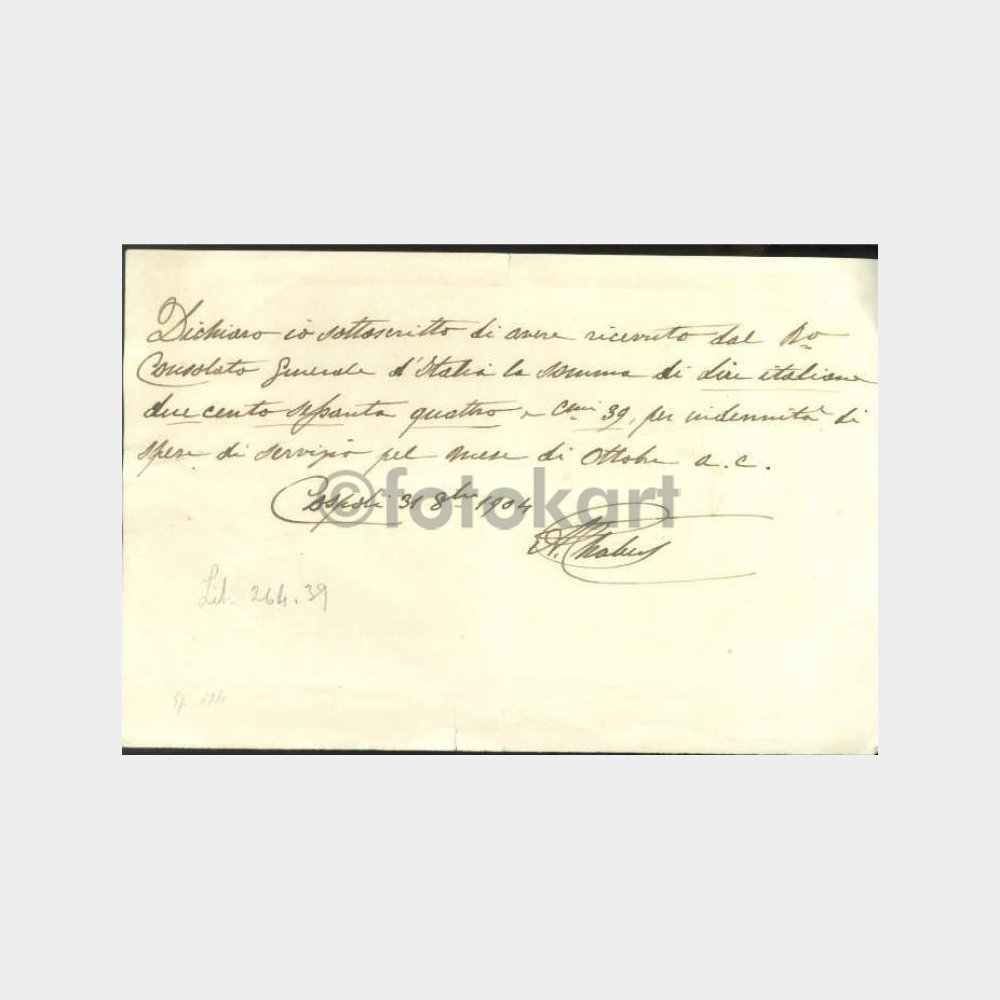 Dichiaro io sottoscritto di avere ricevuto dal Ro
Consolato Generale d'Italia la somma di lire italiane
due cento sessanta quattro e cmi 39, per indennità di
spese di servizio pel mese di Ottobre a.c.
Cospoli 31 8bre 1904
©fotokart
Lit. 264.39